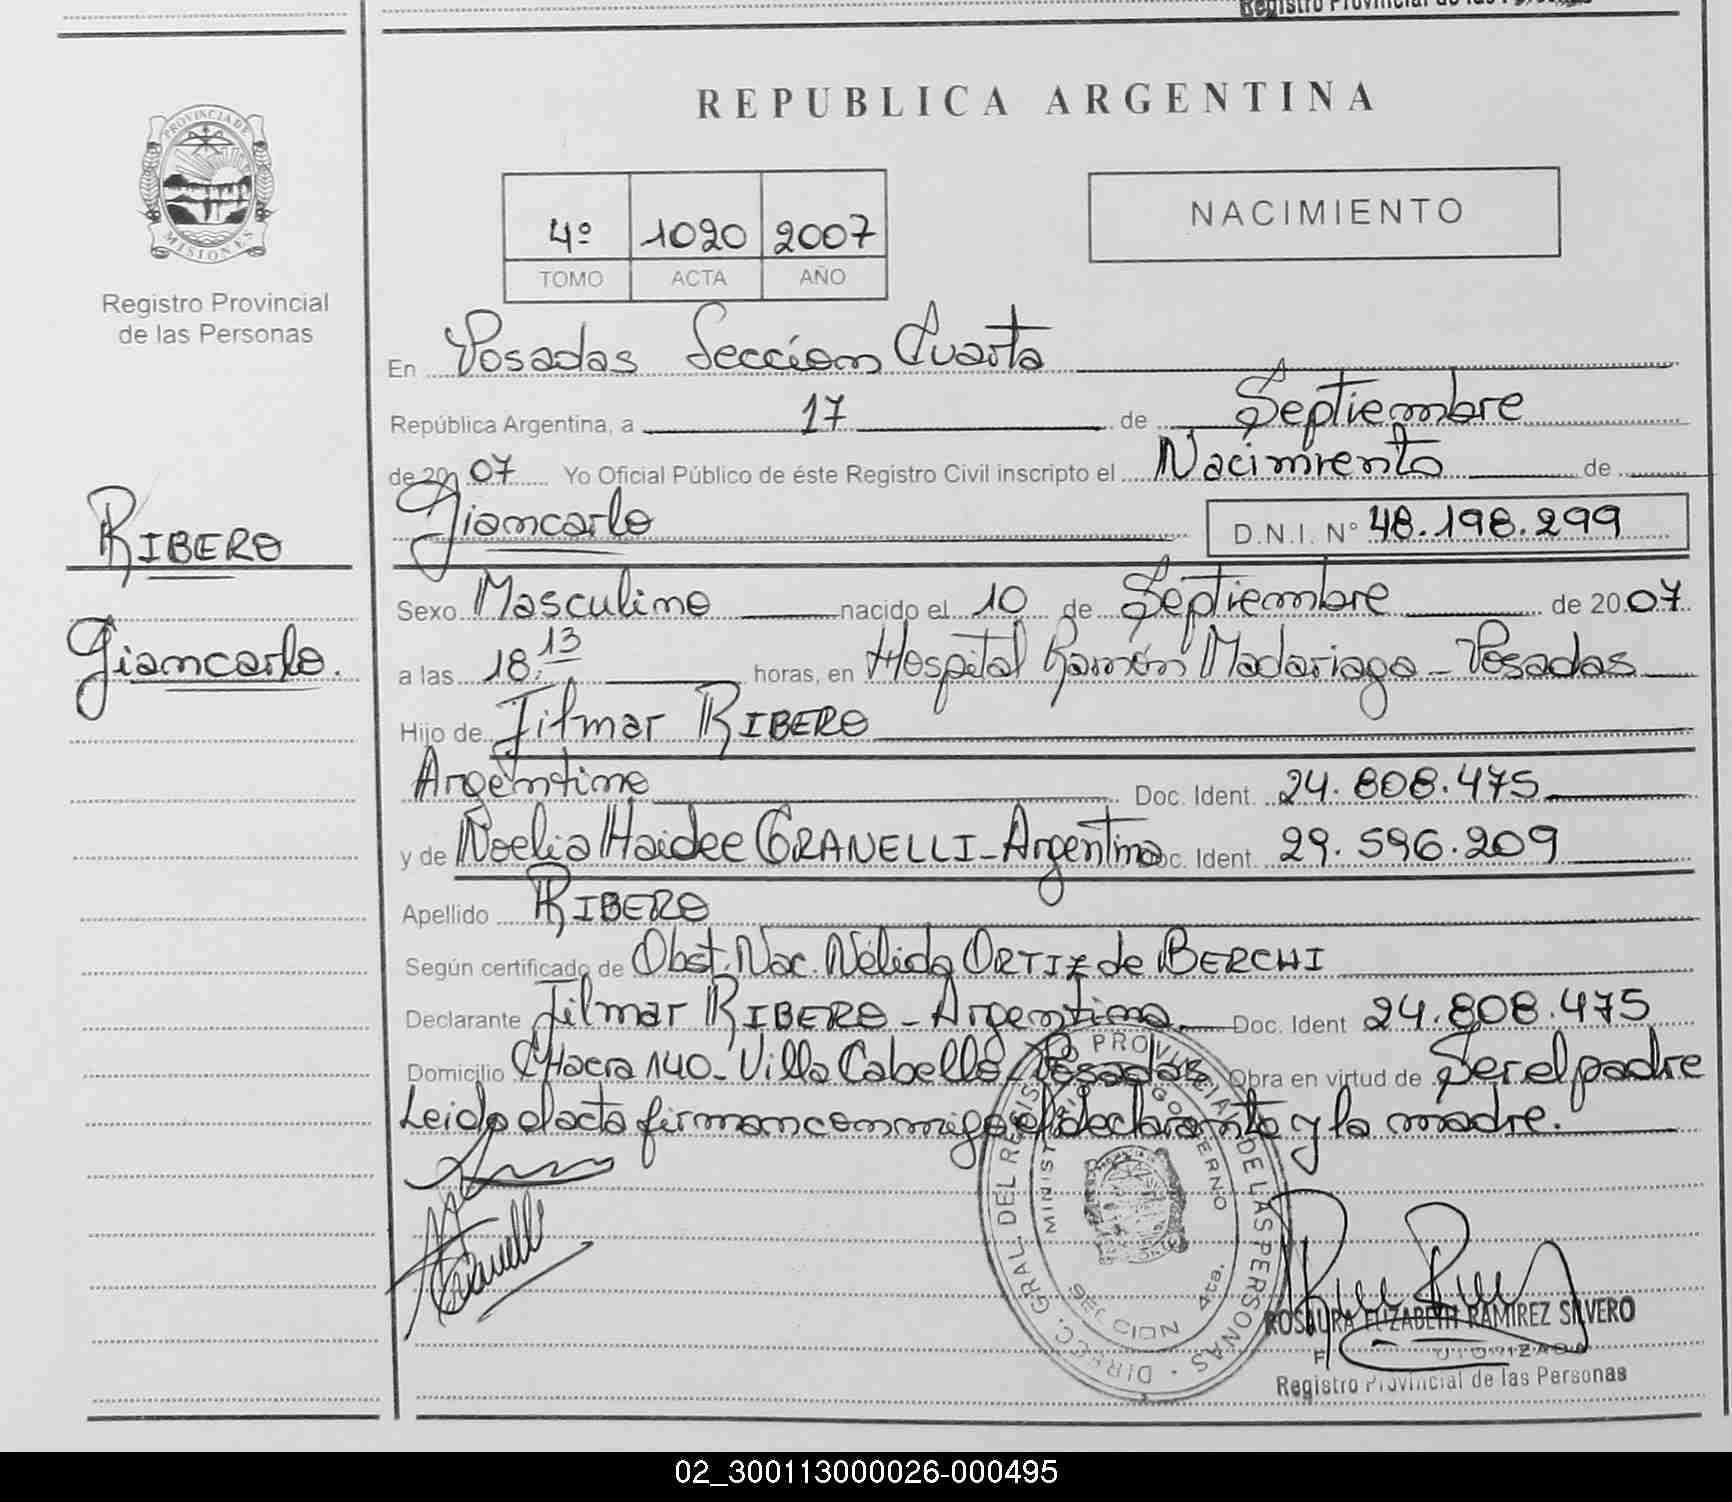 Registro Provincial de las Personas
REPUBLICA ARGENTINA
PROVINCIA DE
MISIONES
Registro Provincial
de las Personas
4º 1020 2007
TOMO ACTA AÑO
NACIMIENTO
En Posadas Sección Cuarta
República Argentina, a 17 de Septiembre
de 2007 Yo Oficial Público de éste Registro Civil inscripto el Nacimiento de
Giancarlo D.N.I. Nº 48.198.299
RIBERO
Giancarlo.
Sexo Masculino nacido el 10 de Septiembre de 2007
a las 18:13 horas, en Hospital Ramón Madariaga - Posadas
Hijo de Jilmar RIBERO
Argentino Doc. Ident. 24.808.475
y de Noelia Haidee GRANELLI - Argentina Doc. Ident. 29.596.209
Apellido RIBERO
Según certificado de Obst. Nac. Nélida ORTIZ de BERCHI
Declarante Jilmar RIBERO - Argentino. Doc. Ident 24.808.475
Domicilio CHacra 140 - Villa Cabello - Posadas Obra en virtud de Ser el padre
Leido el acta firman conmigo el declarante y la madre.
DIRECC. GRAL. DEL REGISTRO PROVINCIAL DE LAS PERSONAS
MINISTERIO GOBIERNO
SECCION 4ta.
Granelli
ROSAURA ELIZABETH RAMIREZ SILVERO
Registro Provincial de las Personas
02_300113000026-000495